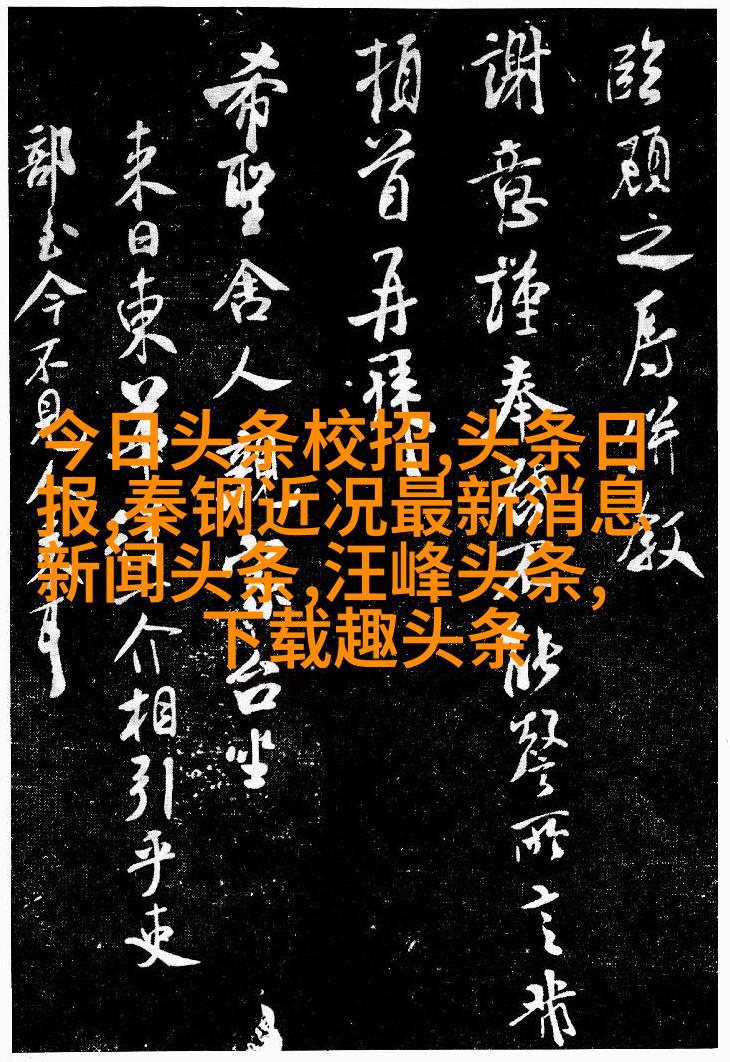 臨顧之辱併敘
謝意謹奉 不能謦所言
頓首再拜
希聖舍人 台坐
來日東 介相引乎吏
部至今不見
今日头条校招,头条日
报,秦钢近况最新消息
新闻头条,汪峰头条,
下载趣头条